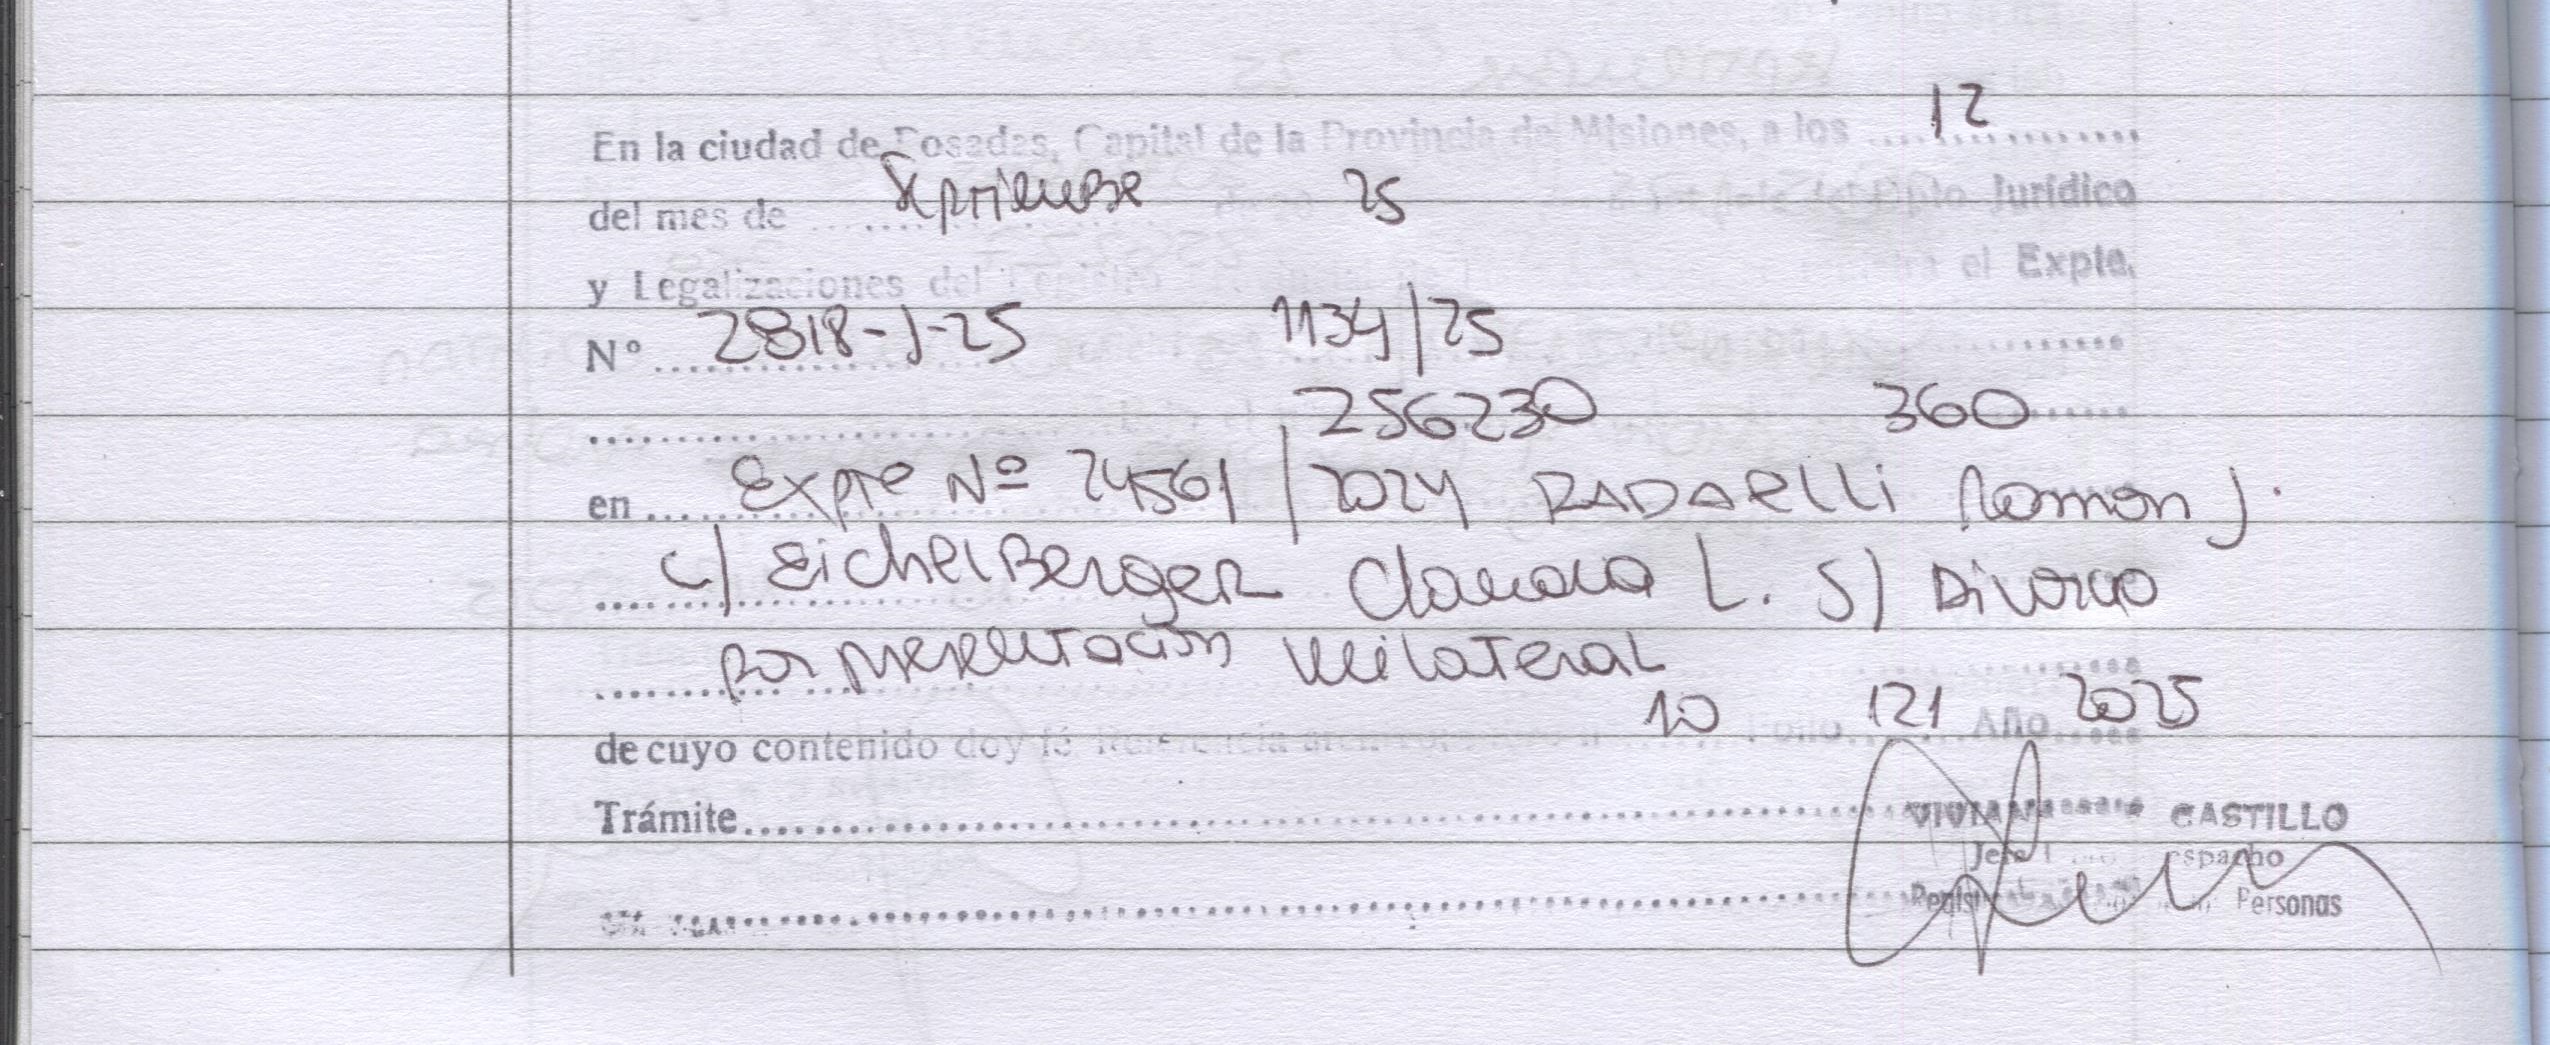 En la ciudad de Posadas, Capital de la Provincia de Misiones, a los 12
del mes de Septiembre 25 Jurídico
y Legalizaciones del el Expte.
N° 2818-J-25 1134/25
256230 360
en Expte Nº 24561/2024 RADAELLI Ramon J.
c/ EichelBerger Claudia L. S/ Divorcio
por presentación unilateral
de cuyo contenido doy fé 10 Folio 121 Año 2025
Trámite
CASTILLO
Personas